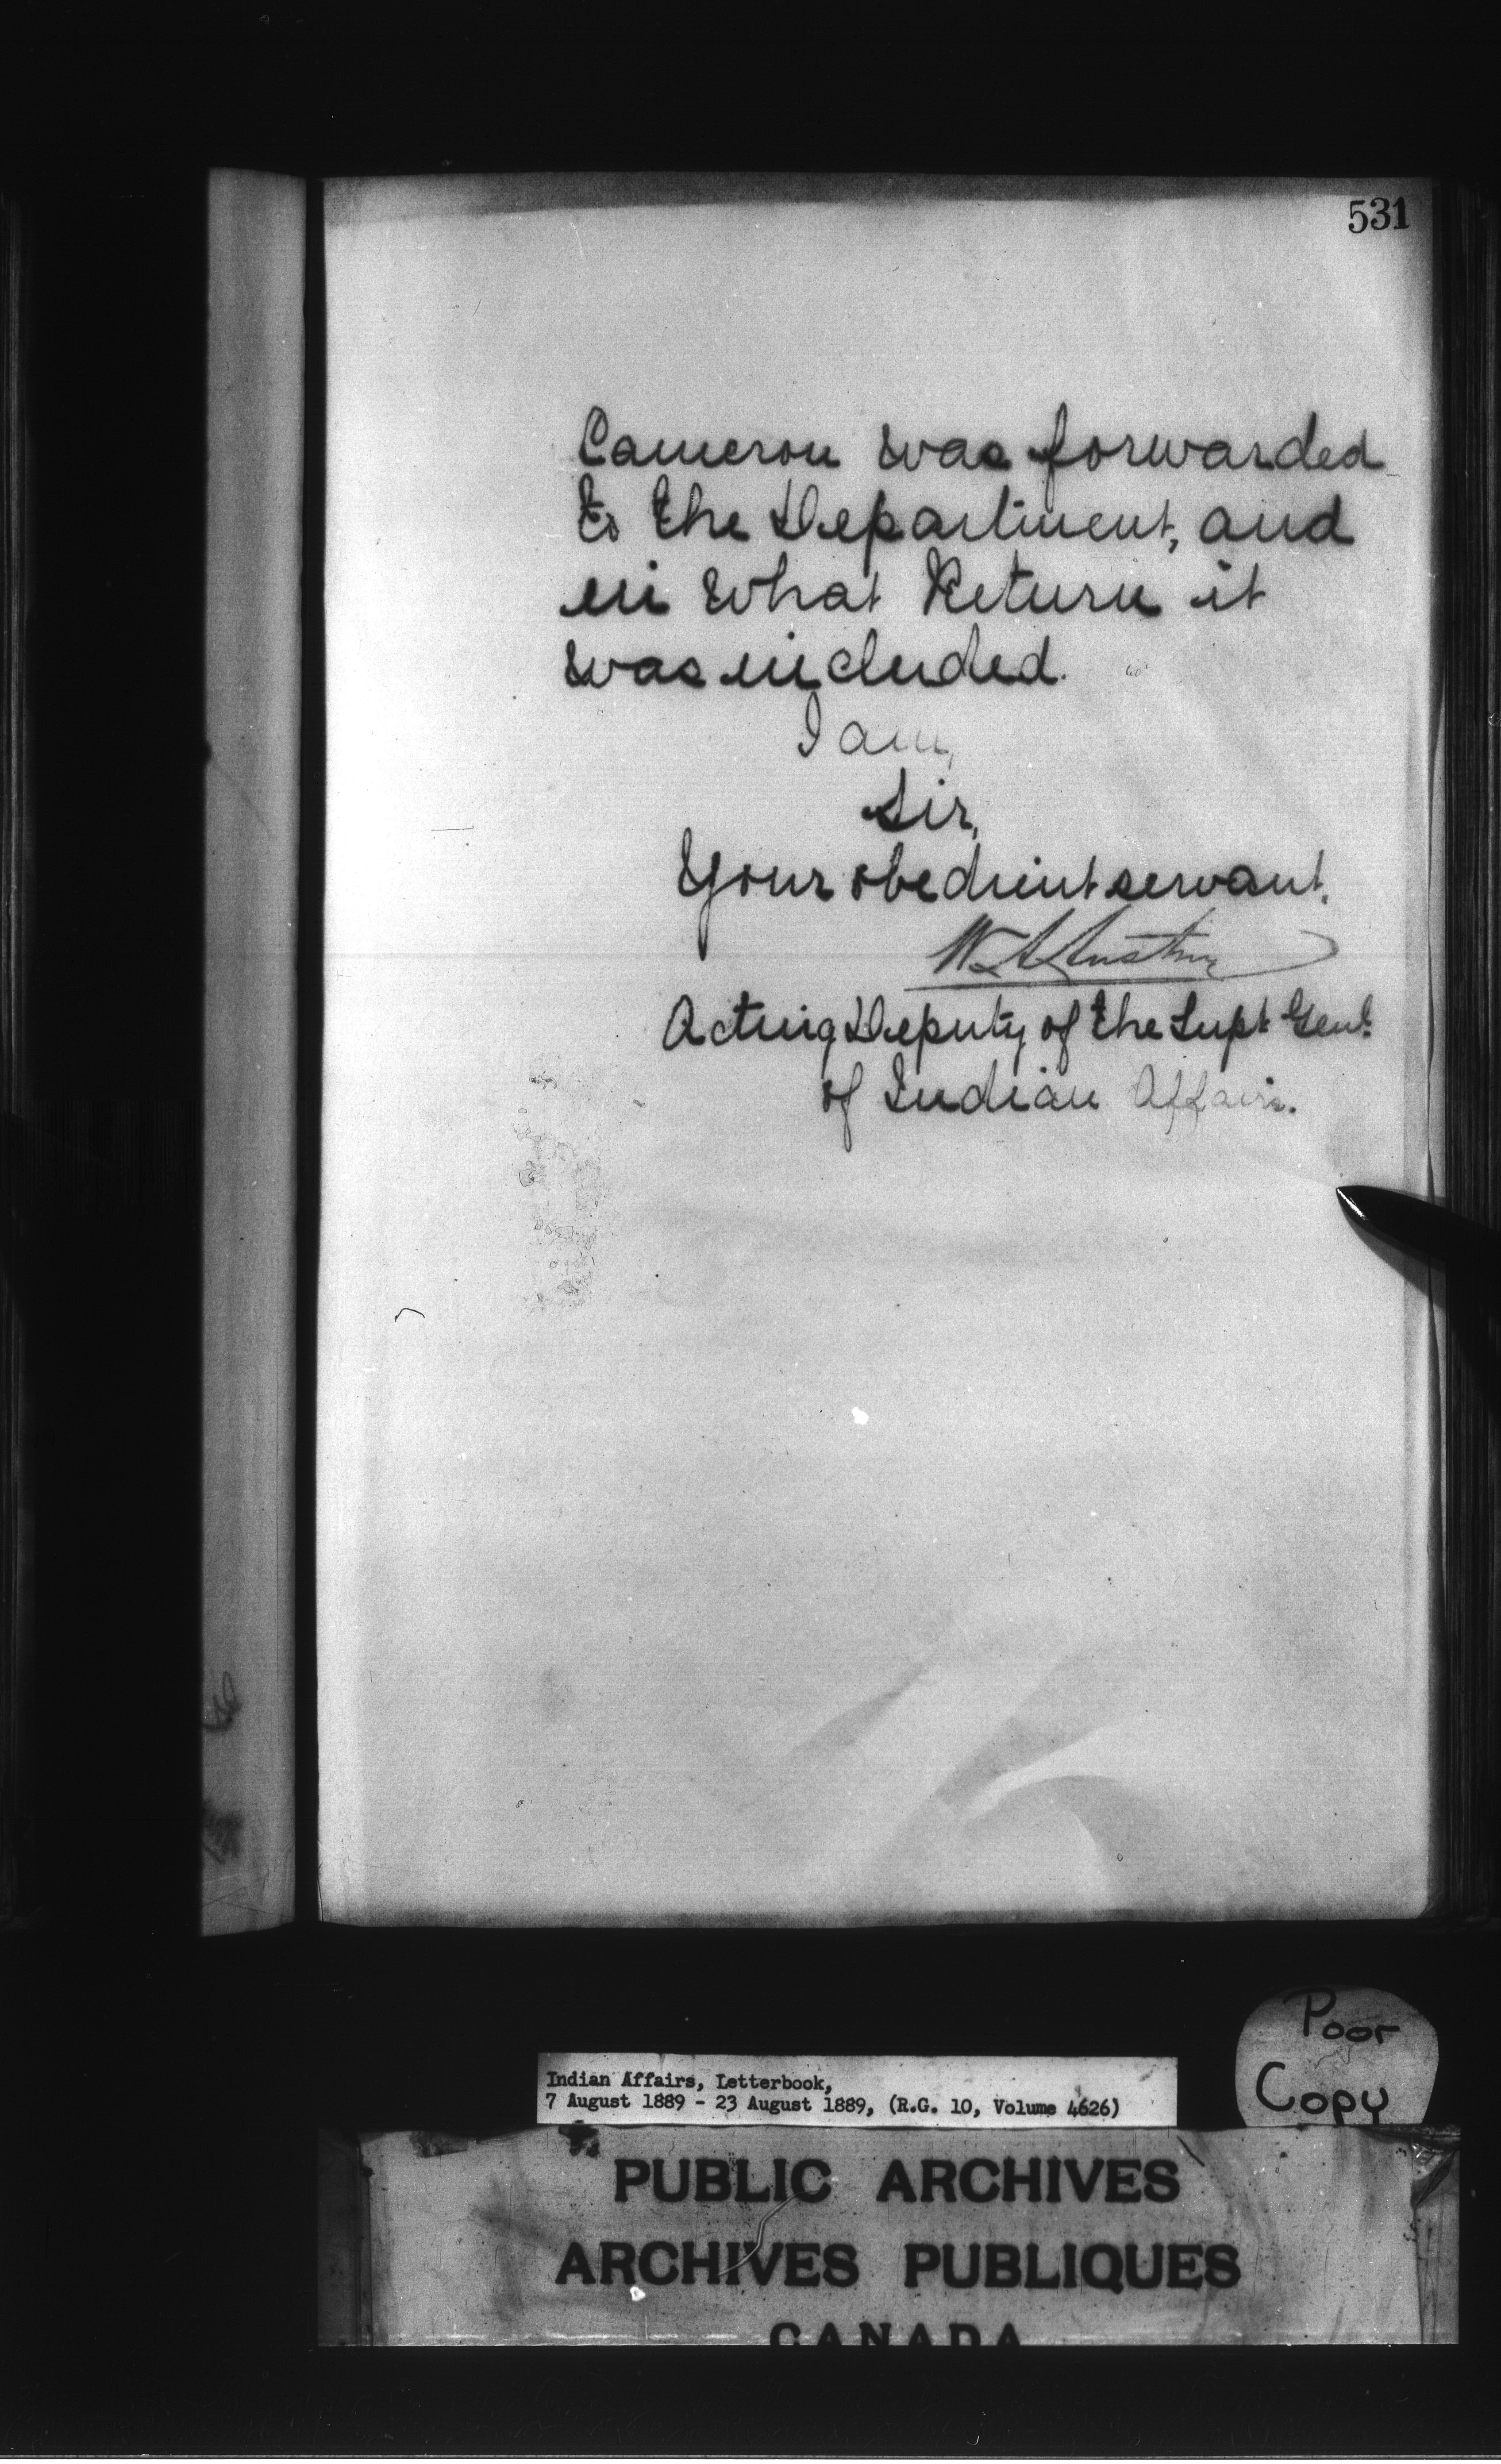 531
Cameron was forwarded
to the Department, and
in what Return it
was included.
I am,
Sir,
Your obedient servant,
W. A. Austin
Acting Deputy of the Supt. Genl.
of Indian Affairs.
Poor
Copy
Indian Affairs, Letterbook,
7 August 1889 - 23 August 1889, (R.G. 10, Volume 4626)
PUBLIC ARCHIVES
ARCHIVES PUBLIQUES
CANADA